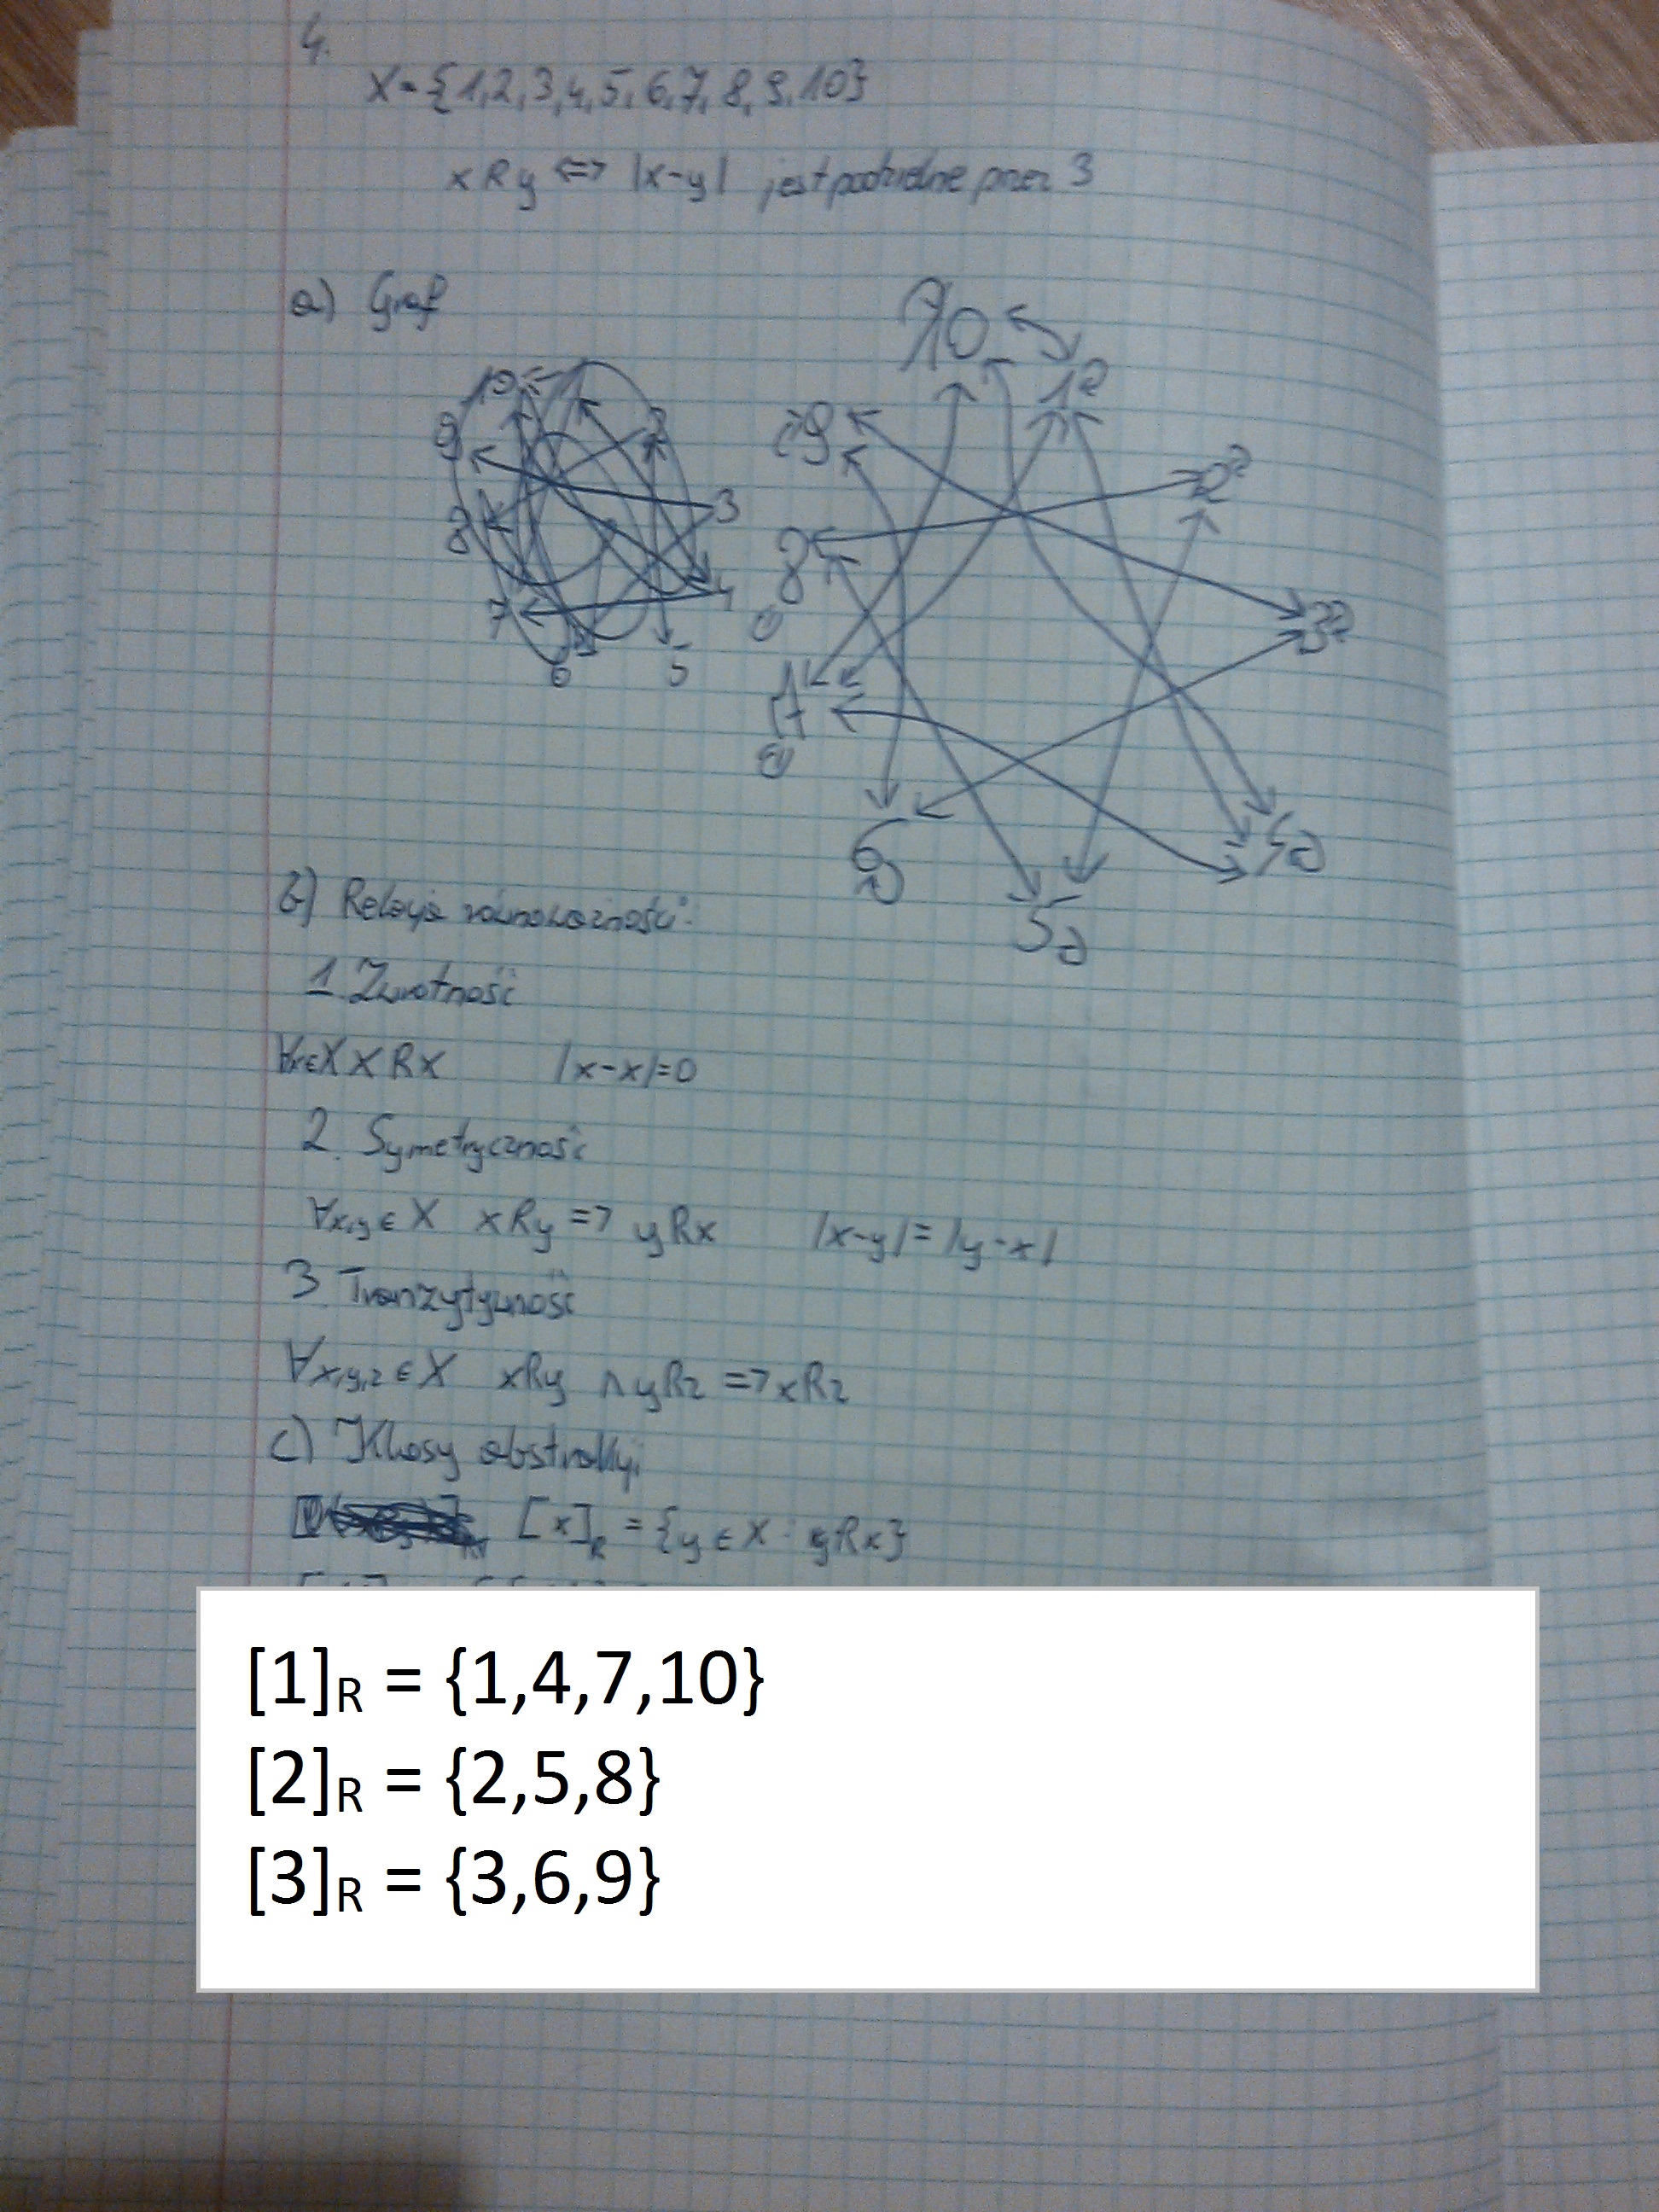 4.
X={1,2,3,4,5,6,7,8,9,10}
xRy <=> |x-y| jest podzielne przez 3
a) Graf
10 1 2 3 4 5 6 7 8 9
10 1 2 3 4 5 6 7 8 9
b) Relacja równoważności:
1. Zwrotność
∀x∈X xRx |x-x|=0
2. Symetryczność
∀x,y∈X xRy => yRx |x-y|=|y-x|
3. Tranzytywność
∀x,y,z∈X xRy ∧ yRz => xRz
c) Klasy abstrakcji
[x]R = {y∈X: yRx}
[1]R = {1,4,7,10}
[2]R = {2,5,8}
[3]R = {3,6,9}